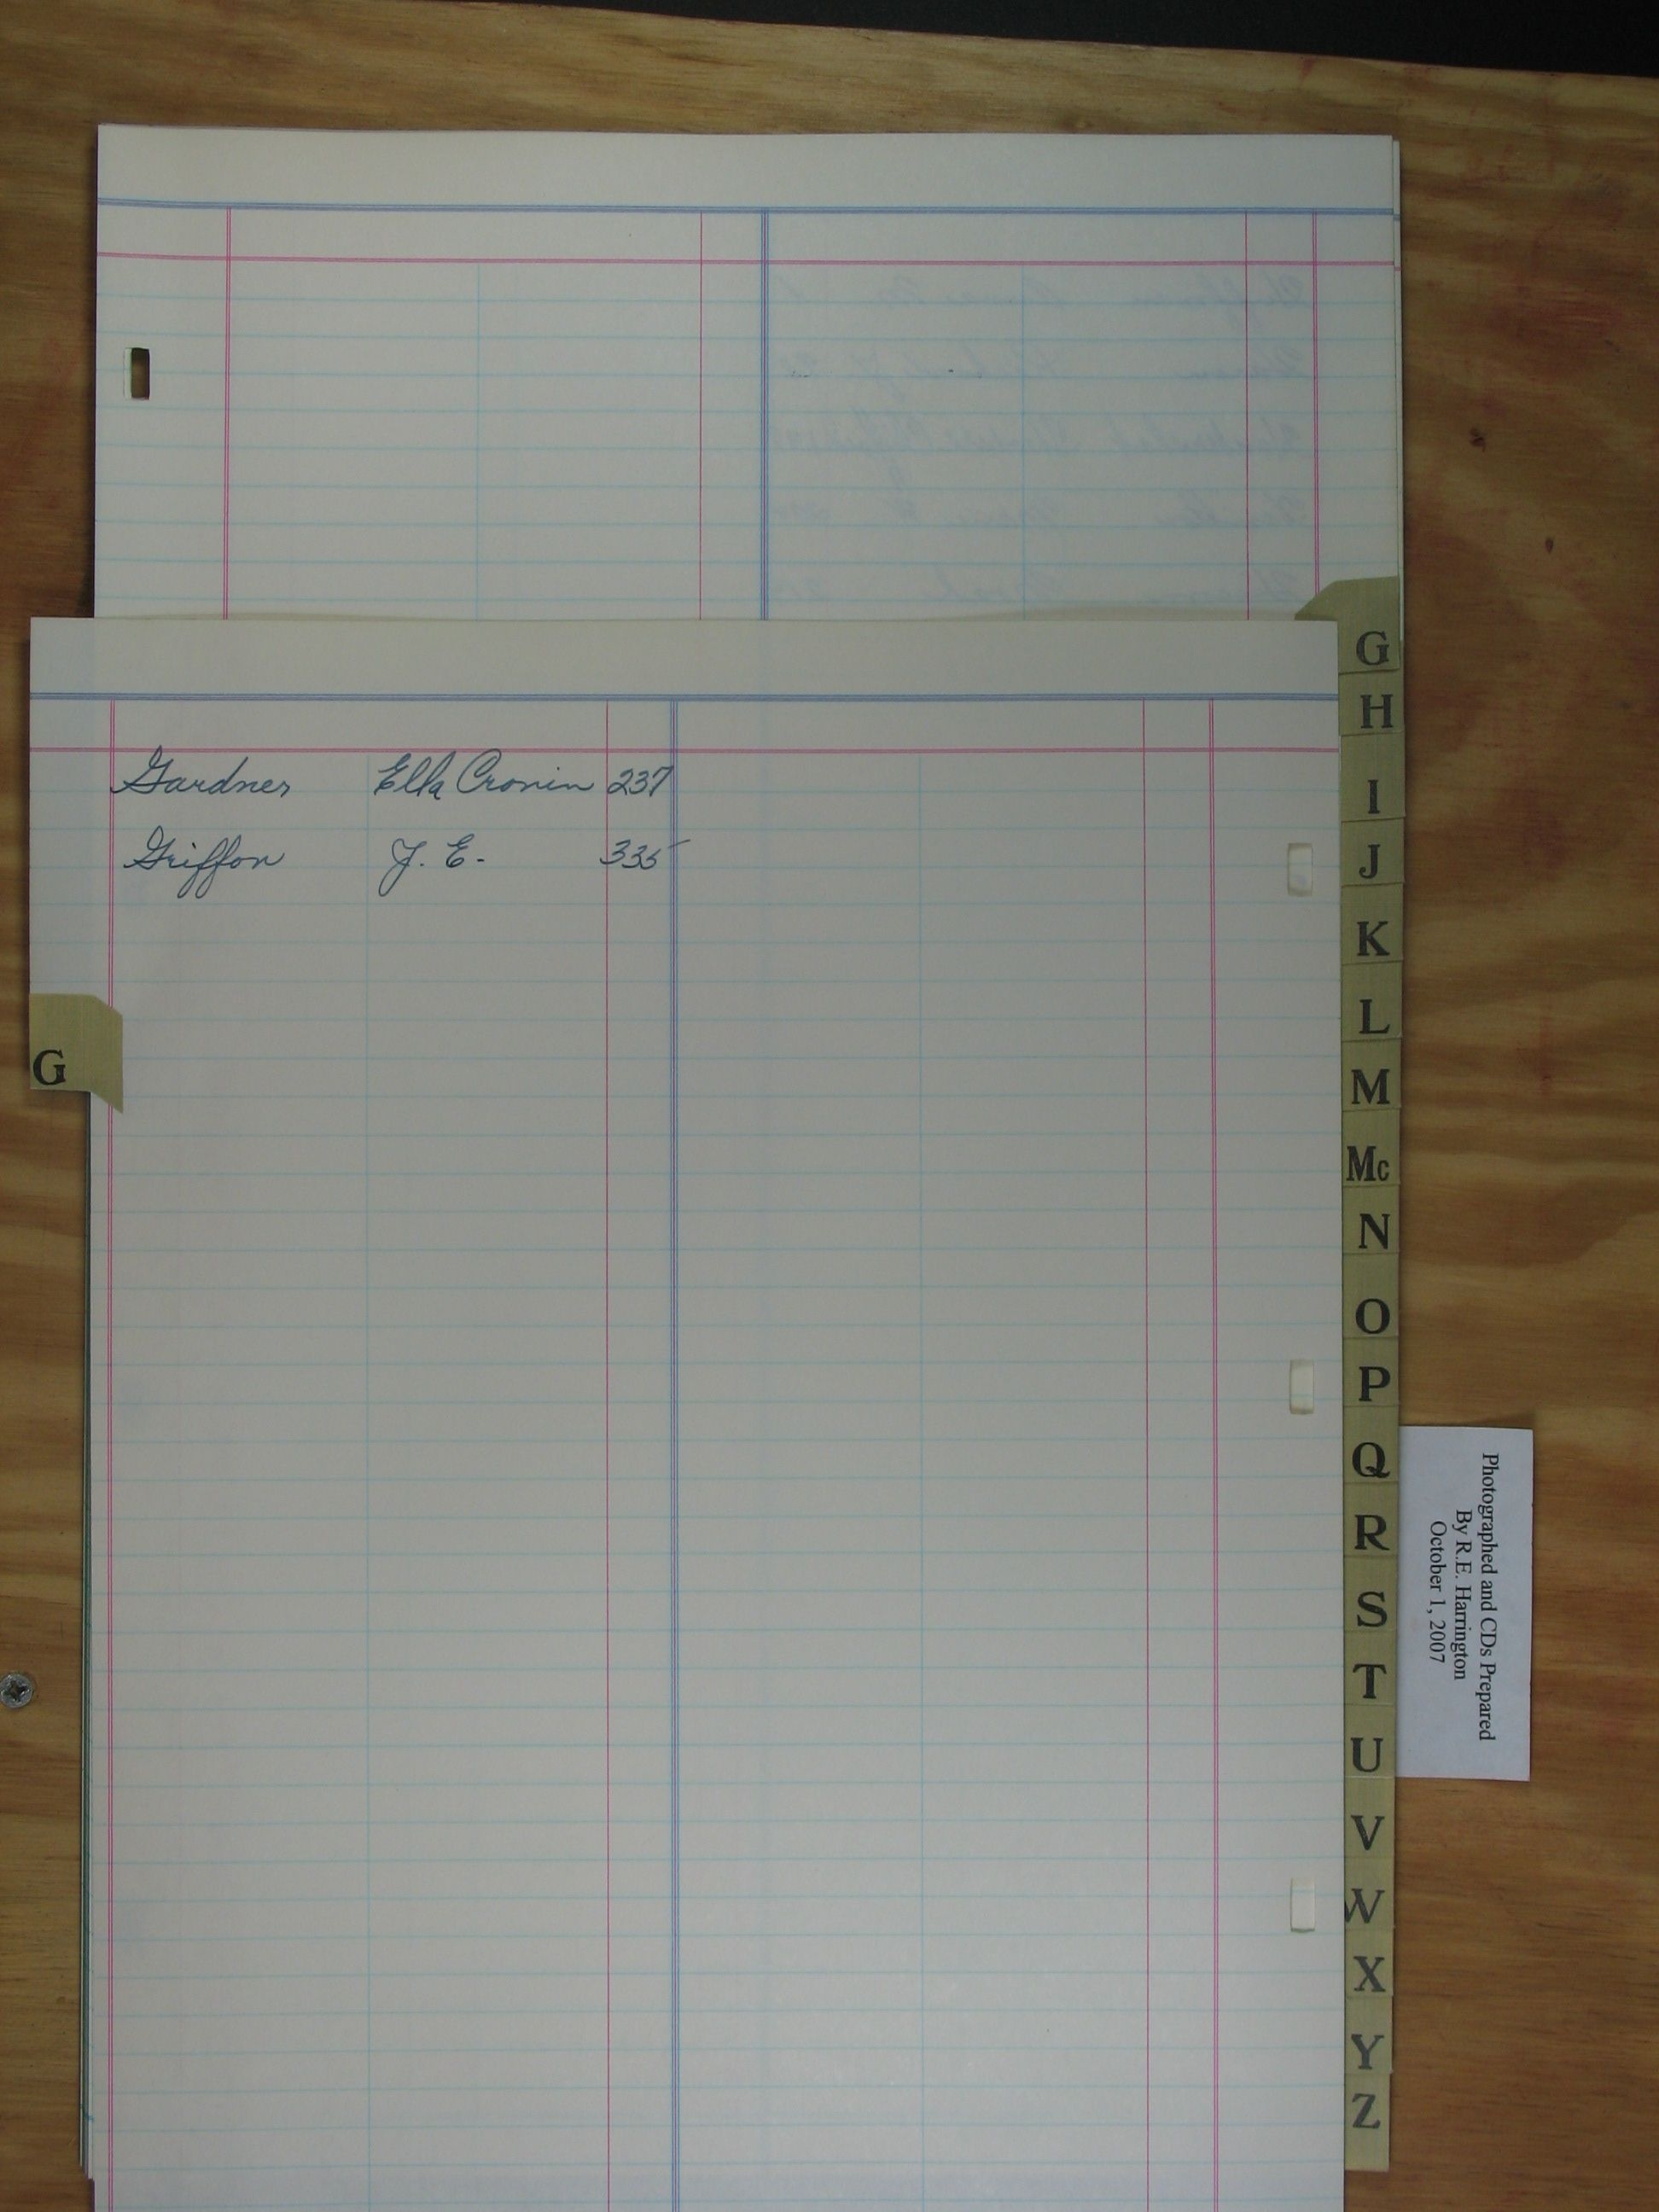 Gardner Ella Cronin 237
Griffon J. E. 335
G
G
H
I
J
K
L
M
Mc
N
O
P
Q
R
S
T
U
V
W
X
Y
Z
Photographed and CDs Prepared
By R.E. Harrington
October 1, 2007